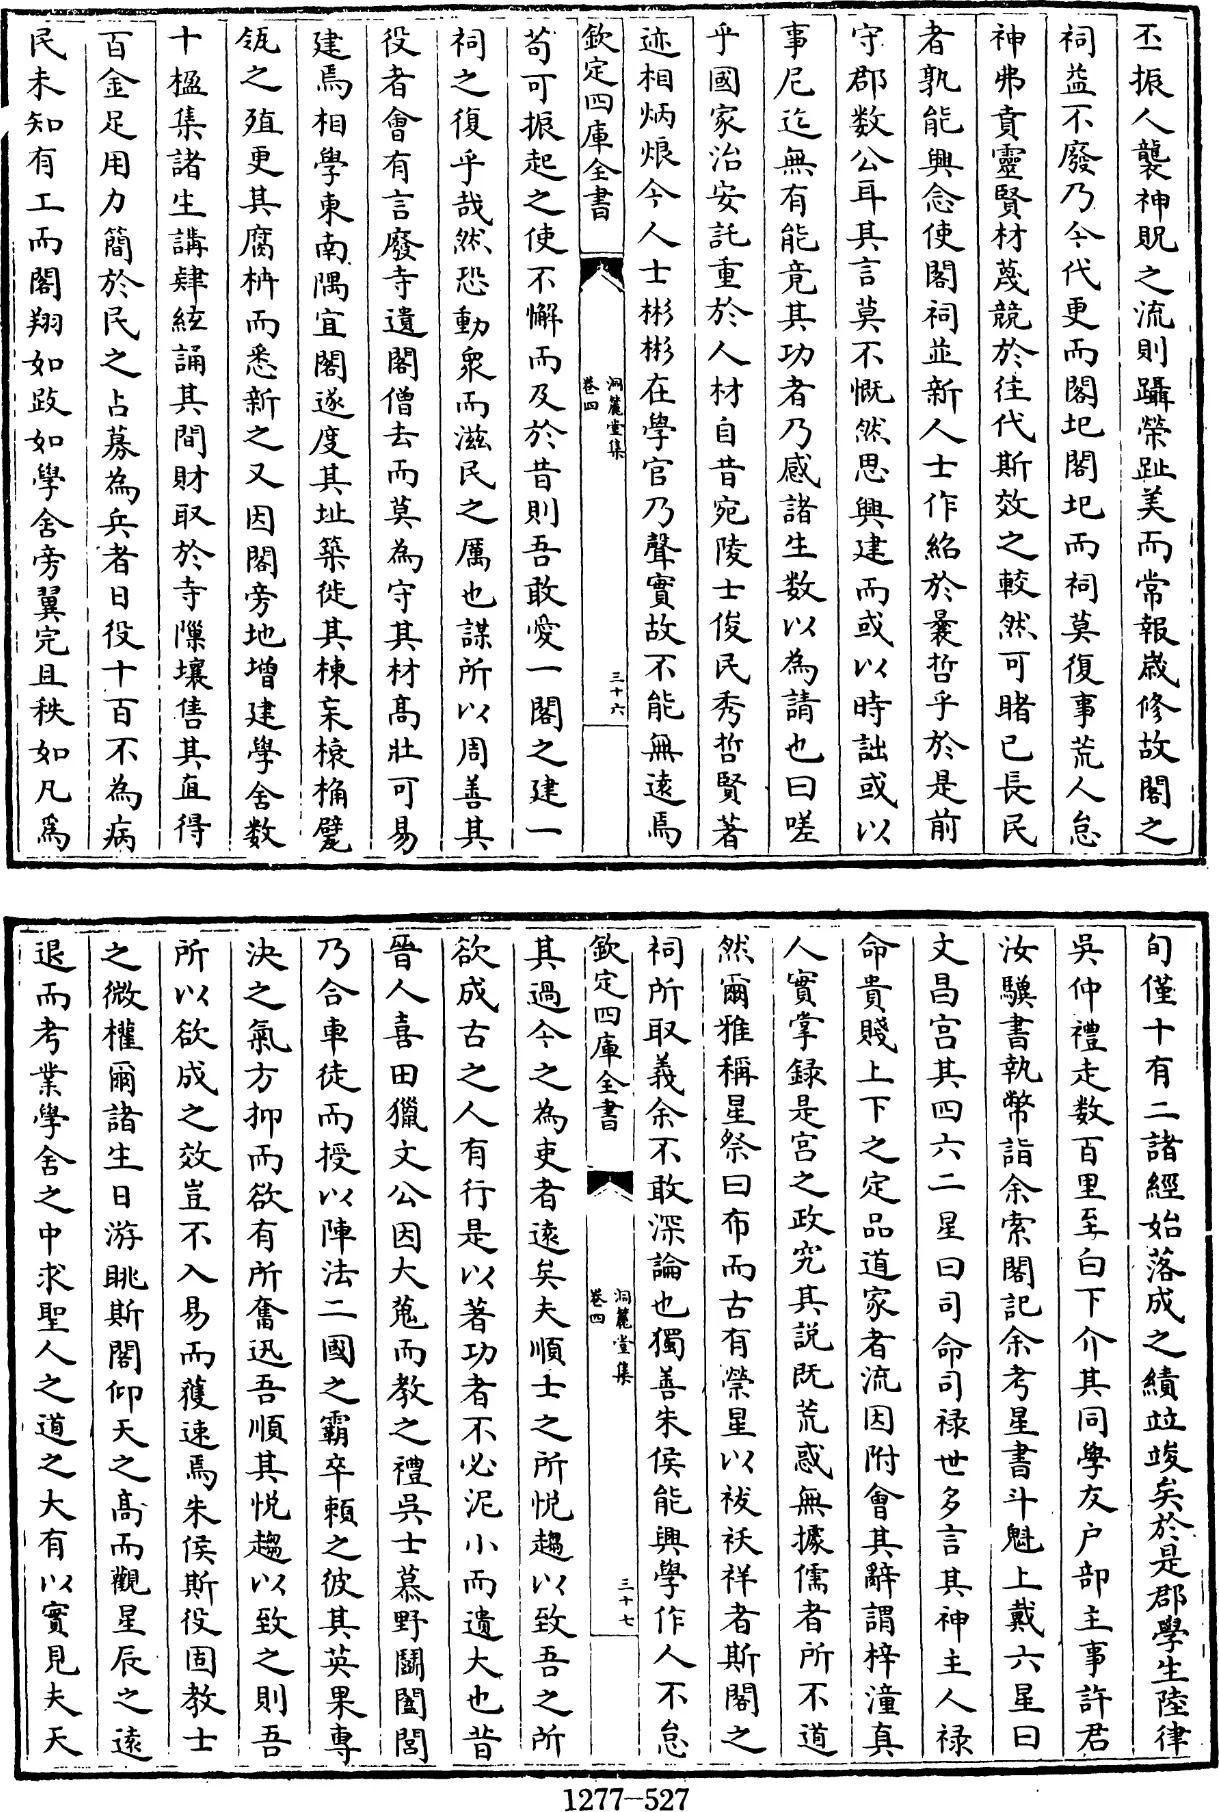 丕振人襲神貺之流則躡榮趾美而常報歲修故閣之
祠益不廢乃今代更而閣圯閣圯而祠莫復事荒人怠
神弗賁靈賢材蔑競於往代斯效之較然可睹已長民
者孰能興念使閣祠並新人士作紹於曩哲乎於是前
守郡数公耳其言莫不慨然思興建而或以時詘或以
事尼迄無有能竟其功者乃感諸生数以為請也曰嗟
乎國家治安託重於人材自昔宛陵士俊民秀哲賢著
迹相炳烺今人士彬彬在學官乃聲實故不能無遠焉
欽定四庫全書
洞麓堂集
卷四
三十六
苟可振起之使不懈而及於昔則吾敢愛一閣之建一
祠之復乎哉然恐動衆而滋民之厲也謀所以周善其
役者會有言廢寺遺閣僧去而莫為守其材髙壯可易
建焉相學東南隅宜閣遂度其址築徙其棟宷榱桷甓
瓴之殖更其腐枬而悉新之又因閣旁地增建學舍数
十楹集諸生講肄絃誦其間財取於寺隟壤售其直得
百金足用力簡於民之占募為兵者日役十百不為病
民未知有工而閣翔如跂如學舍旁翼完且秩如凡為
旬僅十有二諸經始落成之績竝竣矣於是郡學生陸律
吳仲禮走数百里至白下介其同學友户部主事許君
汝驥書執幣詣余索閣記余考星書斗魁上戴六星曰
文昌宫其四六二星曰司命司禄世多言其神主人禄
命貴賤上下之定品道家者流因附會其辭謂梓潼真
人實掌録是宫之政究其説既荒惑無據儒者所不道
然爾雅稱星祭曰布而古有禜星以祓祅祥者斯閣之
祠所取義余不敢深論也獨善朱侯能興學作人不怠
欽定四庫全書
洞麓堂集
卷四
三十七
其過今之為吏者遠矣夫順士之所悦趨以致吾之所
欲成古之人有行是以著功者不必泥小而遺大也昔
晉人喜田獵文公因大蒐而教之禮吳士慕野鬭闔閭
乃合車徒而授以陣法二國之霸卒頼之彼其英果專
決之氣方抑而欲有所奮迅吾順其悦趨以致之則吾
所以欲成之效豈不入易而獲速焉朱侯斯役固教士
之微權爾諸生日游眺斯閣仰天之髙而觀星辰之遠
退而考業學舍之中求聖人之道之大有以實見夫天
1277—527